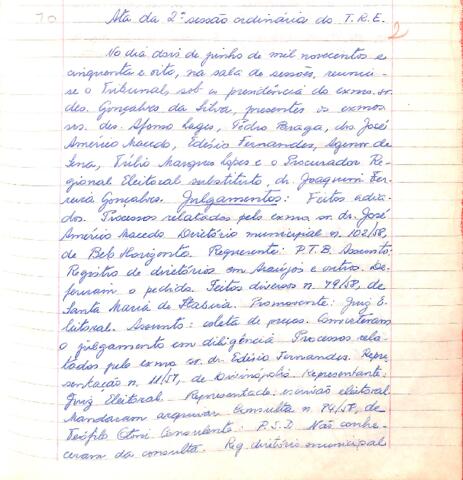 70
Ata da 2ª sessão ordinária do T.R.E.
2
No dia dois de junho de mil novecentos e
cinquenta e oito, na sala de sessões, reuni-
se o Tribunal, sob a presidência do exmo. sr.
des. Gonçalves da Silva, presentes os exmos
srs. des. Afonso Lages, Pedro Braga, drs. José
Américo Macedo, Edésio Fernandes, Agenor de
Sena, Túlio Marques Lopes e o Procurador Re-
gional Eleitoral substituto, dr. Joaquim Fer-
reira Gonçalves. Julgamentos: Feitos adia-
dos. Processos relatados pelo exmo sr. dr. José
Américo Macedo. Diretório municipal n. 102/58,
de Belo Horizonte. Requerente: P.T.B. Assunto:
Registro de diretórios em Araújos e outros. De-
feriram o pedido. Feitos diversos n. 79/58, de
Santa Maria de Itabira. Promovente: Juiz E-
leitoral. Assunto: coleta de preços. Converteram
o julgamento em diligência. Processos rela-
tados pelo exmo sr. dr. Edésio Fernandes. Repre-
sentação n. 11/57, de Divinópolis. Representante:
Juiz Eleitoral. Representado: escrivão eleitoral.
Mandaram arquivar. Consulta n. 84/58, de
Teófilo Otoni. Consulente: P.S.D. Não conhe-
ceram da consulta. Reg. diretório municipal